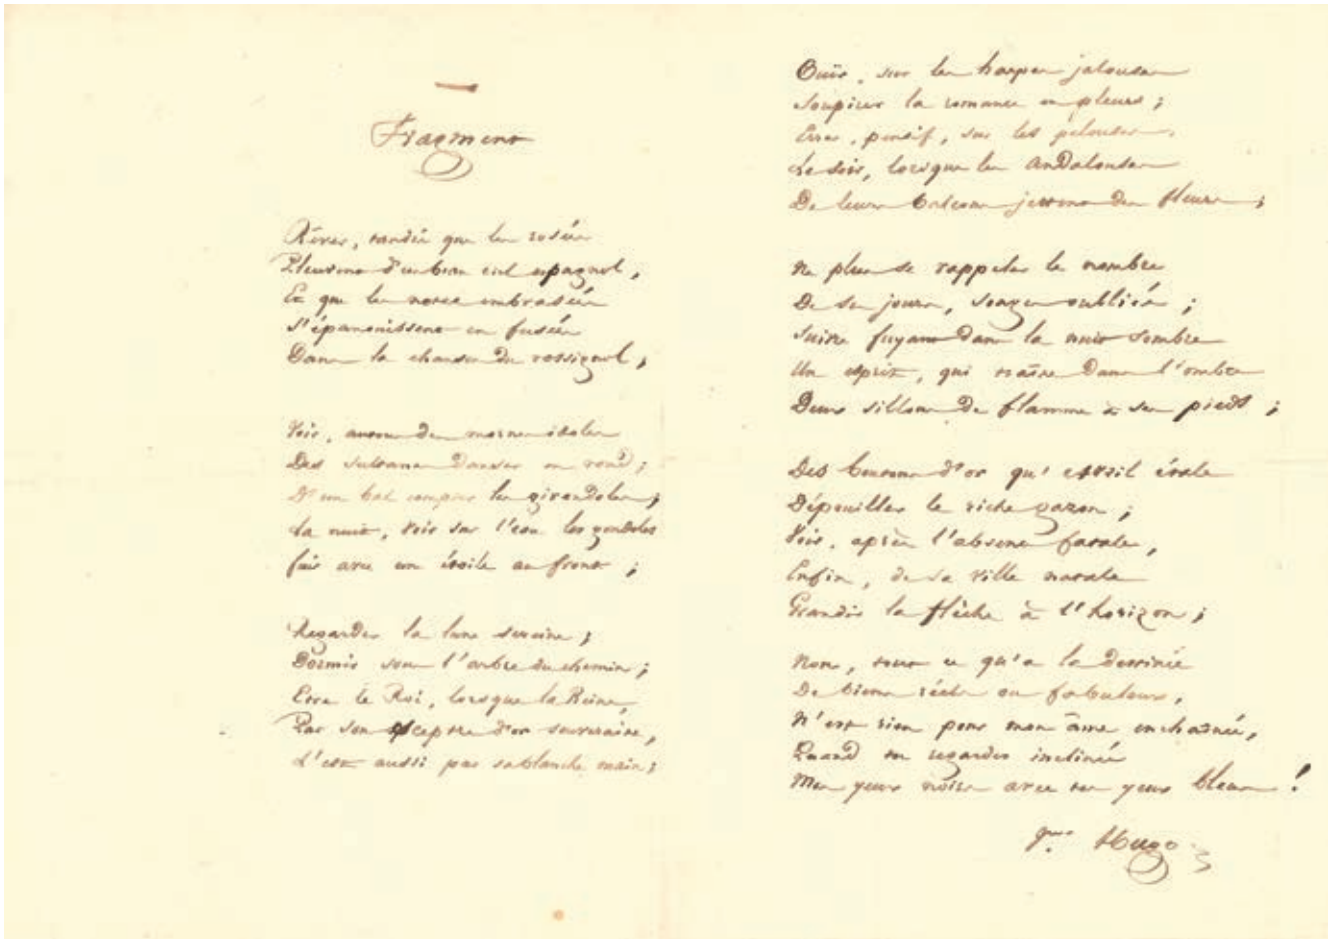 Fragment
Rêver, tandis que les rosées
Pleuvent d'un beau ciel espagnol,
Et que les notes embrasées
S'épanouissent en fusées
Dans la chanson du rossignol ;
Voir, autour de mornes idoles
Des sultanes danser en rond ;
D'un bal compter les girandoles ;
La nuit, voir sur l'eau les gondoles
fuir avec une étoile au front ;
Regarder la lune sereine ;
Dormir sous l'arbre du chemin ;
Etre le Roi, lorsque la Reine,
Par son sceptre d'or souveraine,
L'est aussi par sa blanche main ;
Ouïr, sur les harpes jalouses
Soupirer la romance en pleurs ;
Errer, pensif, sur les pelouses,
Le soir, lorsque les Andalouses
De leurs balcons jettent des fleurs ;
Ne plus se rappeler le nombre
De ses jours, songes oubliés ;
Suivre fuyant dans la nuit sombre
Un esprit, qui traîne dans l'ombre
Deux sillons de flamme à ses pieds ;
Des boutons d'or qu'avril étale
Dépouiller le riche gazon ;
Voir, après l'absence fatale,
Enfin, de sa ville natale
Grandir la flèche à l'horizon ;
Non, tout ce qu'a la destinée
De biens réels ou fabuleux,
N'est rien pour mon âme enchaînée,
Quand tu regardes inclinée
Mes yeux noirs avec tes yeux bleus !
Hugo